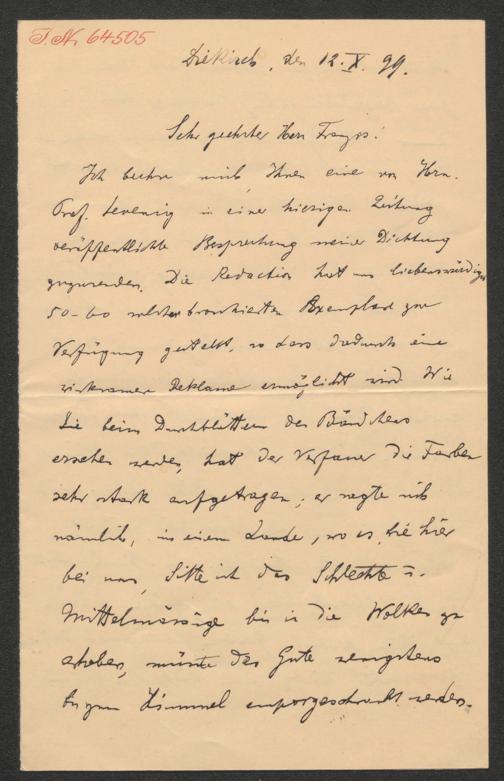 I. N. 64505
Diekirch, den 12. X. 99.
Sehr geehrter Herr Franzos!
Ich beehre mich, Ihnen eine von Hrn.
Prof. Sevenig in einer hiesigen Zeitung
veröffentlichte Besprechung meiner Dichtung
zuzusenden. Die Redaction hat uns liebenswürdiger
50-60 solcher broschierten Exemplare zur
Verfügung gestellt, so dass dadurch eine
wirksamere Reklame ermöglicht wird. Wie
Sie beim Durchblättern des Bändchens
ersehen werden, hat der Verfasser die Farben
sehr stark aufgetragen; er sagte sich
nämlich, in einem Lande, wo es, wie hier
bei uns, Sitte ist das Schlechte u.
Mittelmässige bis in die Wolken zu
erheben, müsste das Gute wenigstens
bis zum Himmel emporgeschraubt werden.